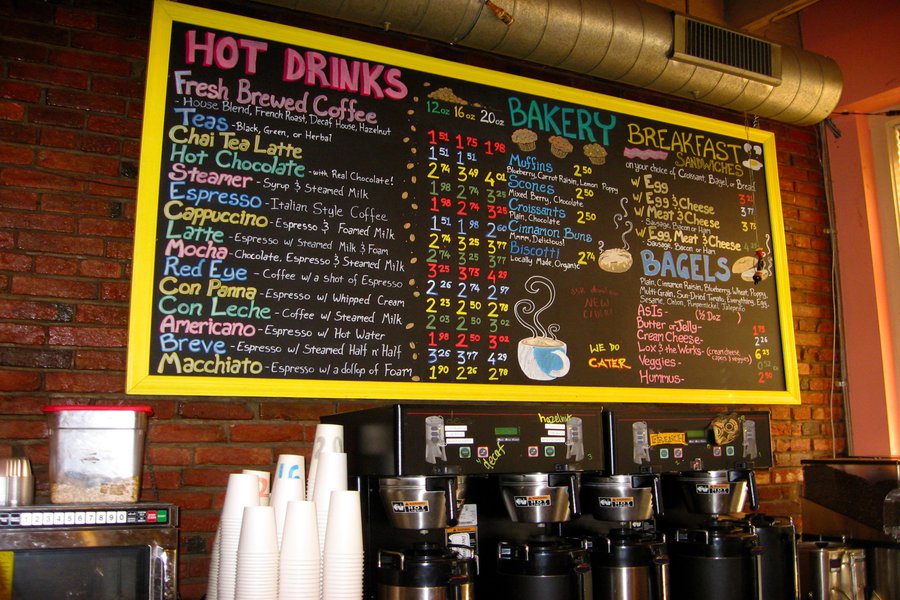 HOT DRINKS
Fresh Brewed Coffee
- House Blend, French Roast, Decaf House, Hazelnut
Teas - Black, Green, or Herbal
Chai Tea Latte
Hot Chocolate - with Real Chocolate!
Steamer - Syrup & Steamed Milk
Espresso - Italian Style Coffee
Cappuccino - Espresso & Foamed Milk
Latte - Espresso w/ Steamed Milk & Foam
Mocha - Chocolate, Espresso & Steamed Milk
Red Eye - Coffee w/a shot of Espresso
Con Panna - Espresso w/ Whipped Cream
Con Leche - Coffee w/ Steamed Milk
Americano - Espresso w/ Hot Water
Breve - Espresso w/ Steamed Half n' Half
Macchiato - Espresso w/ a dollop of Foam
12oz 16oz 20oz
1.51 1.75 1.98
1.51 1.51
2.74 3.49 4.01
1.98 2.74 3.25
1.98 2.74 3.25
1.51 1.98 2.60
2.74 3.25 3.77
2.74 3.25 3.77
3.25 3.73 4.29
2.26 2.74 2.57
2.23 2.50 2.78
2.03 2.50 3.02
1.98 2.50 3.02
3.26 3.77 4.29
1.90 2.26 2.78
BAKERY
Muffins 2.50
Blueberry, Carrot Raisin, Lemon Poppy
Scones 2.50
Mixed Berry, Chocolate
Croissants 2.50
Plain, Chocolate
Cinnamon Buns
Mmmm, Delicious!
Biscotti
Locally Made, Organic
NEW
CIDER!
WE DO
CATER
BREAKFAST
SANDWICHES
on your choice of Croissant, Bagel, or Bread
w/ Egg 3.21
w/ Egg & Cheese 3.77
w/ Meat & Cheese 3.75
Sausage, Bacon or Ham
w/ Egg, Meat & Cheese
Sausage, Bacon or Ham
BAGELS
Plain, Cinnamon Raisin, Blueberry, Wheat, Poppy,
Multi-Grain, Sun-Dried Tomato, Everything, Egg,
Sesame, Onion, Pumpernickel, Jalapeño
AS IS - (½ Doz )
Butter or Jelly - 1.75
Cream Cheese - 2.26
Lox & the Works - (cream cheese, 6.23
capers & veggies)
Veggies -
Hummus - 2.50
hazelnut
decaf
FRENCH
HOT
HOT
HOT
HOT
1 2 3 4 5 6 7 8 9 0